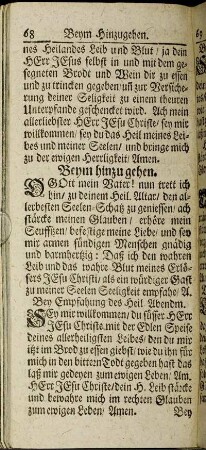 68 Beym Hinzugehen.
nes Heilandes Leib und Blut / ja dein
HErr JEsus selbst in und mit dem ge-
segneten Brodt und Wein dir zu essen
und zu trincken gegeben / uñ zur Versiche-
rung deiner Seligkeit zu einem theuren
Unterpfande geschencket wird. Ach mein
allerliebster HErr JEsu Christe / sey mir
willkommen / sey du das Heil meines Lei-
bes und meiner Seelen / und bringe mich
zu der ewigen Herrligkeit / Amen.
Beym hinzu gehen.
O GOtt mein Vater! nun trett ich
hin / zu deinem Heil. Altar / den al-
lerbesten Seelen-Schatz zu geniessen / ach
stärcke meinen Glauben / erhöre mein
Seufftzen / befestige meine Liebe / und sey
mir armen sündigen Menschen gnädig
und barmhertzig: Daß ich den wahren
Leib und das wahre Blut meines Erlö-
sers JEsu Christi als ein würdiger Gast
zu meiner Seelen Seligkeit empfahe / A.
Bey Empfahung des Heil. Abendm.
Sey mir willkommen / du süsser HErr
JEsu Christe mit der Edlen Speise
deines allerheiligsten Leibes / den du mir
itzt im Brod zu essen giebst / wie du ihn für
mich in den bittern Todt gegeben hast das
laß mir gedeyen zum ewigen Leben / Am.
HErr JEsu Christe / dein H. Leib stärcke
und bewahre mich im rechten Glauben
zum ewigen Leben / Amen. Bey